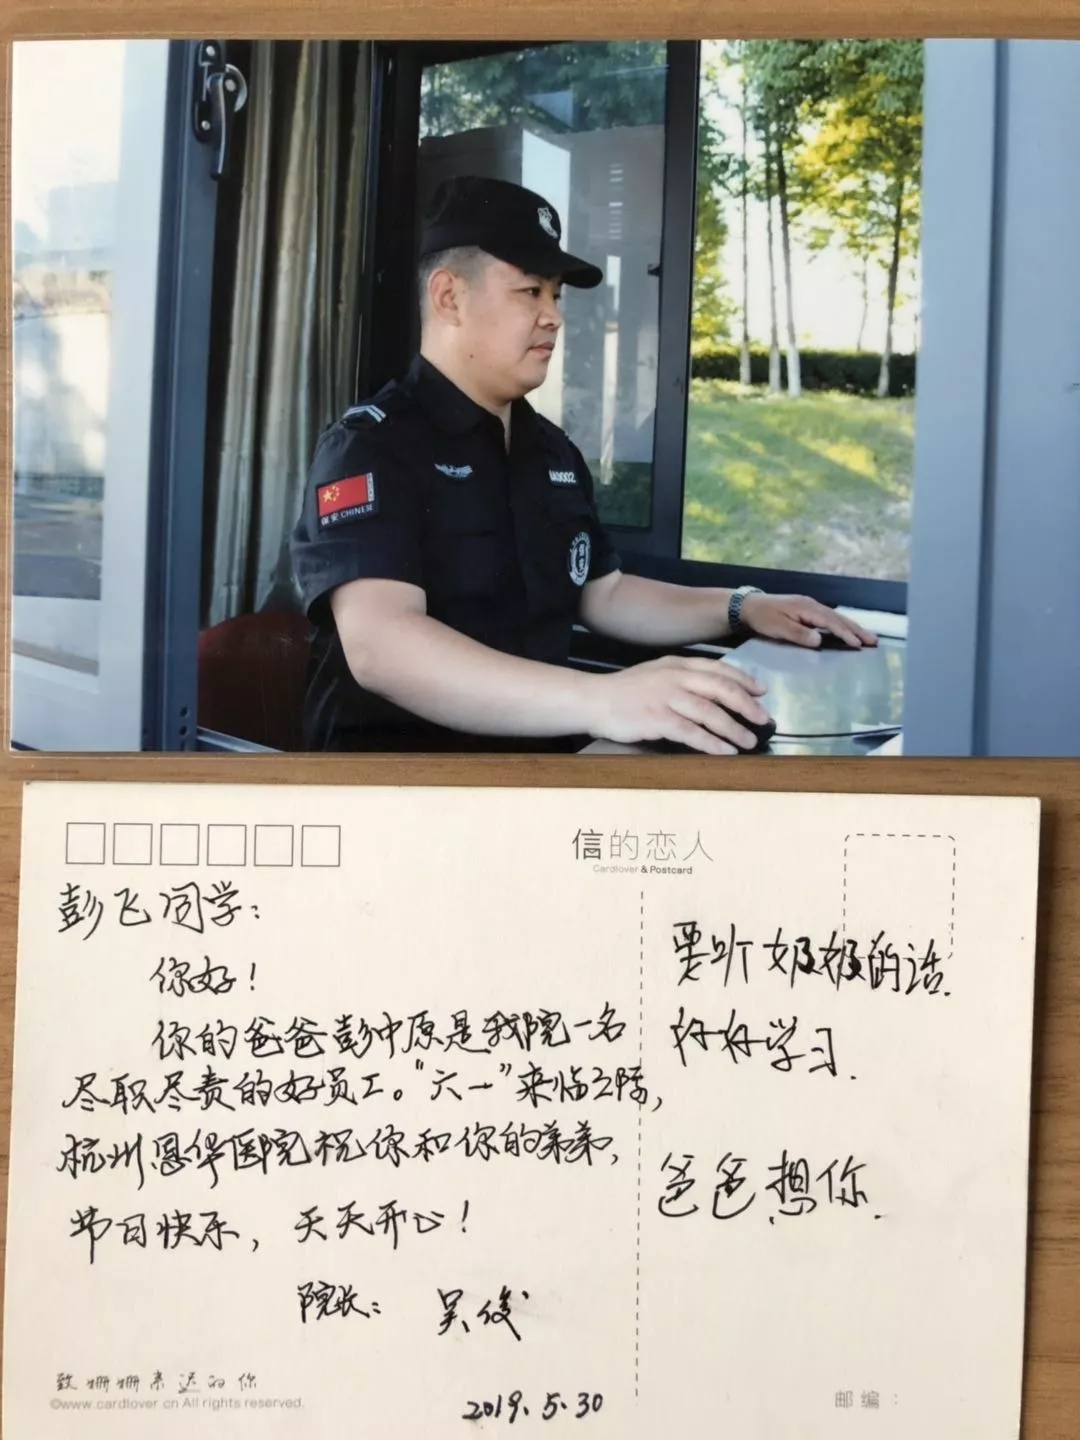 保安 CHINESE
信的恋人
Cardlover & Postcard
彭飞同学：
你好！
你的爸爸彭冲原是我院一名
尽职尽责的好员工。“六一”来临之际，
杭州恩华医院祝你和你的弟弟，
节日快乐，天天开心！
院长：吴俊
2019.5.30
要听奶奶的话.
好好学习.
爸爸想你.
致姗姗来迟的你
©www.cardlover.cn All rights reserved.
邮编：